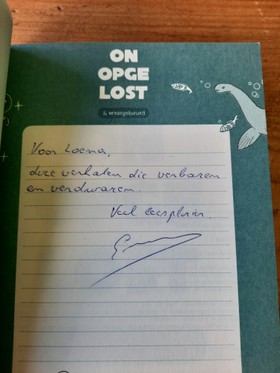 ON
OPGE
LOST
& onopgehelderd
Voor Loena,
deze verhalen die verbazen
en verdwazen.
Veel leesplezier.